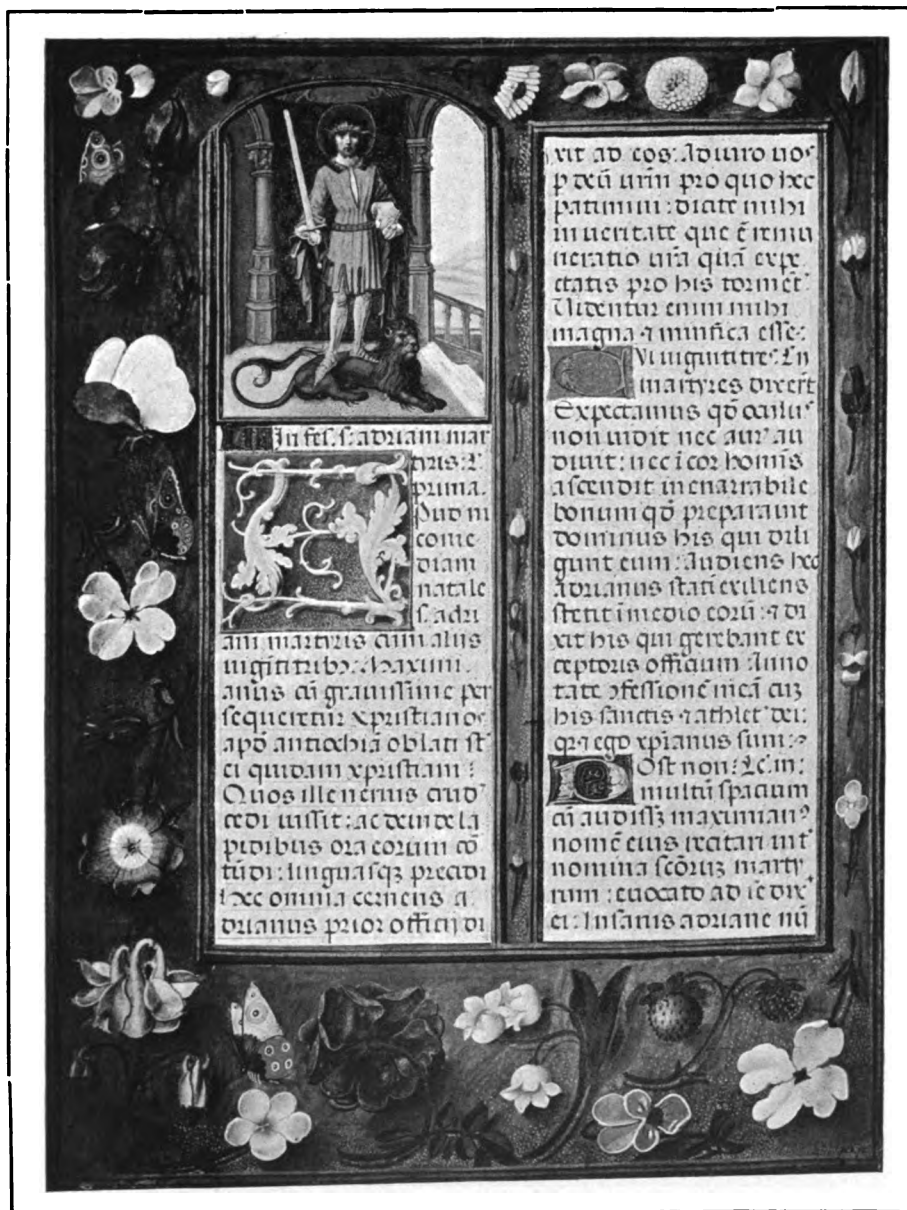 In fes. s. adriani mar
tyris: L'
prima.
Apud ni
come
diam
natale
s. adri
ani martyris cum aliis
uigintitribꝰ. Maximi
anus cū grauissime per
sequeretur xpristianos
apō antiochiā oblati st̄
ei quidam xpristiani:
Quos ille neruis crud'
cedi iussit: ac deinde la
pidibus ora eorum cō
tūdi: linguasqꝫ precidi
hec omnia cernens a
drianus prior officij di
xit ad eos: Adiuro uos
p deū urm̄ pro quo hec
patimini: dicite mihi
in ueritate que ē remu
neratio ur̄a quā expe
ctatis pro his torment'
Uidentur enim mihi
magna ⁊ mirifica esse:
Ui uigintitres Ln
martyres dixert̄
Expectamus qd̄ oculus
non uidit nec aur' au
diuit: nec ī cor homīs
ascendit inenarrabile
bonum qd̄ preparauit
dominus his qui dili
gunt eum: Audiens hec
adrianus statī exiliens
stetit ī medio eorū: ⁊ di
xit his qui gerebant ex
ceptoris officium: Anno
tate ꝯfessionē meā cuꝫ
his sanctis ⁊ athlet' dei:
qꝛ ⁊ ego xp̄ianus sum:
Post non: Le. iii:
multū spacium
cū audissꝫ maximianꝰ
nomē eius recitari int'
nomina scōruꝫ marty
rum: euocato ad se dix'
ei: Insanis adriane nū